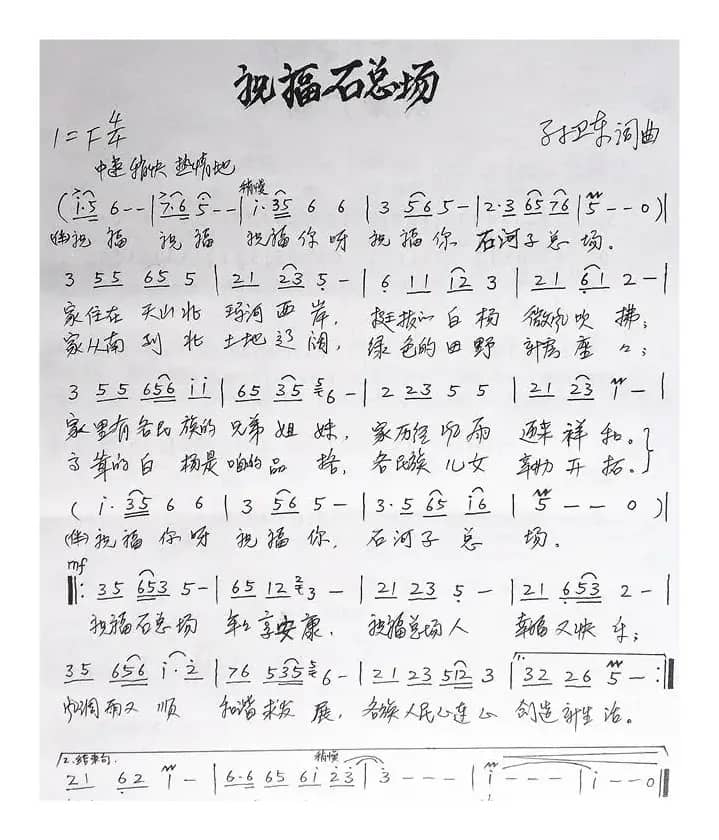 祝福石总场
1=F 4/4
孙卫东词曲
中速稍快 热情地
稍慢
(i·5 6 - - | 7·6 5 - - | i·35 6 6 | 3 56 5 - | 2·3 65 76 | 5 - - 0)|
(伴)祝福 祝福 祝福你呀 祝福你 石河子总场。
3 55 65 5 | 21 23 5 - | 6 11 12 3 | 21 61 2 - |
家住在天山北 玛河西岸, 挺拔的白杨 微风吹拂;
家从南到北 土地辽阔, 绿色的田野 座々;
3 55 656 ii | 65 35 6 - | 2 223 5 5 | 21 23 1 - |
家里有各民族的兄弟姐妹, 家历经风雨 迎来祥和。
高耸的白杨是咱的品格, 各民族儿女 开拓。
( i·35 6 6 | 3 56 5 - | 3·5 65 i6 | 5 - - 0 )|
(伴)祝福你呀 祝福你, 石河子总场。
mf
‖: 35 653 5 - | 65 12 3 - | 21 23 5 - | 21 653 2 - |
祝福石总场 年々享安康, 祝福总场人 幸福又快乐;
35 656 i·2 | 76 535 6 - | 21 23 512 3 | 1. 32 26 5 - :‖
风调雨又顺 和谐求发展, 各族人民心连心 创造新生活。
2.结束句. 稍慢
21 62 1 - | 6·6 65 6i 23 | 3 - - - | i - - - | i - - 0